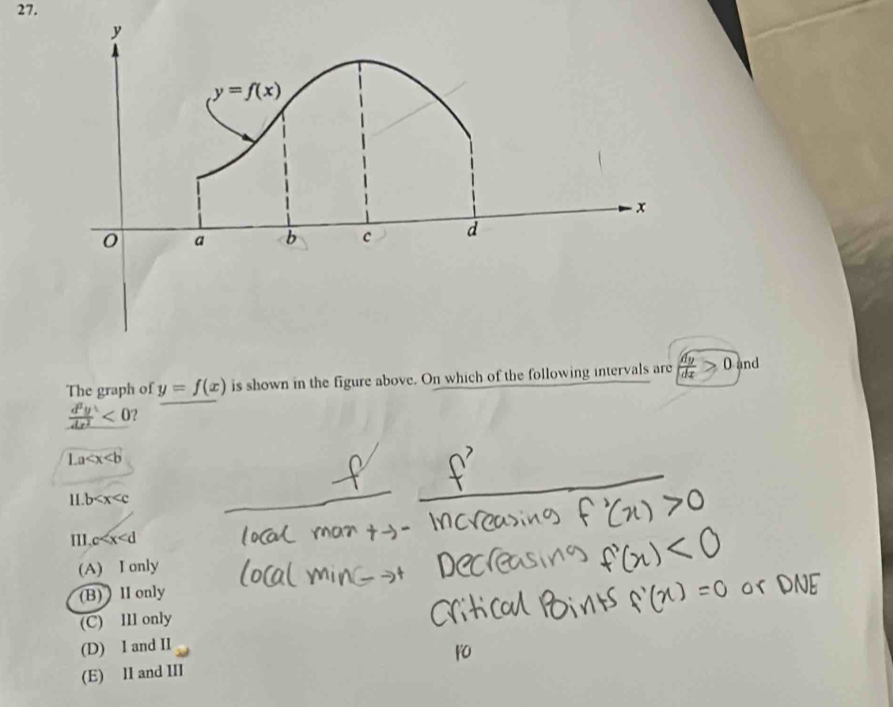 27.
y
y = f(x)
x
O a b c d
The graph of y = f(x) is shown in the figure above. On which of the following intervals are dy/dx > 0 and
d²y/dx² < 0?
I.a<x<b
II.b<x<c
III.c<x<d
(A) I only
(B) II only
(C) III only
(D) I and II
(E) II and III
f f'
local max + → - Increasing f'(x) > 0
local min - → + Decreasing f'(x) < 0
Critical Points f'(x) = 0 or DNE